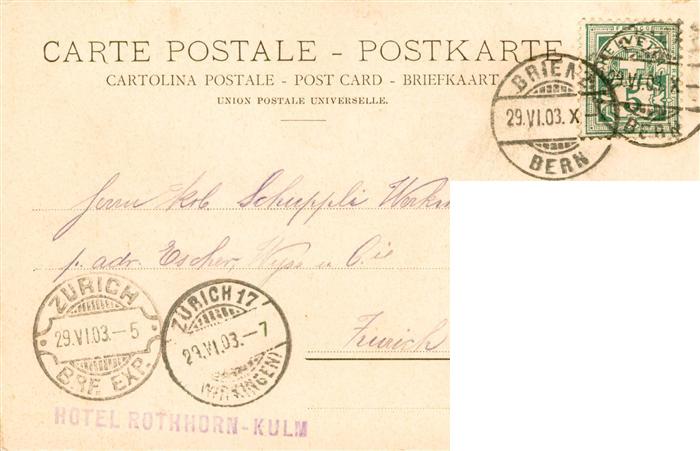 CARTE POSTALE - POSTKARTE
CARTOLINA POSTALE - POST CARD - BRIEFKAART
UNION POSTALE UNIVERSELLE.
BRIENZ
29.VI.03.X
BERN
HELVETIA
5
29.VI.03.X
BERN
Herrn Jkb. Schuppli
p. adr. Escher, Wyss u Cie
Zürich
ZÜRICH
29.VI.03.-5
BRF. EXP.
ZÜRICH 17
29.VI.03.-7
(WIPKINGEN)
HOTEL ROTHHORN-KULM